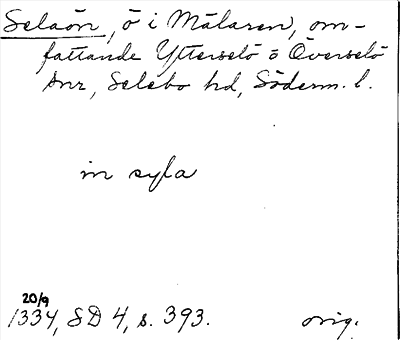 Selaön, ö i Mälaren, om-
fattande Ytterselö o Överselö
snr, Selebo hd, Söderm. l.
in syla
20/9
1334, SD 4, s. 393. orig.